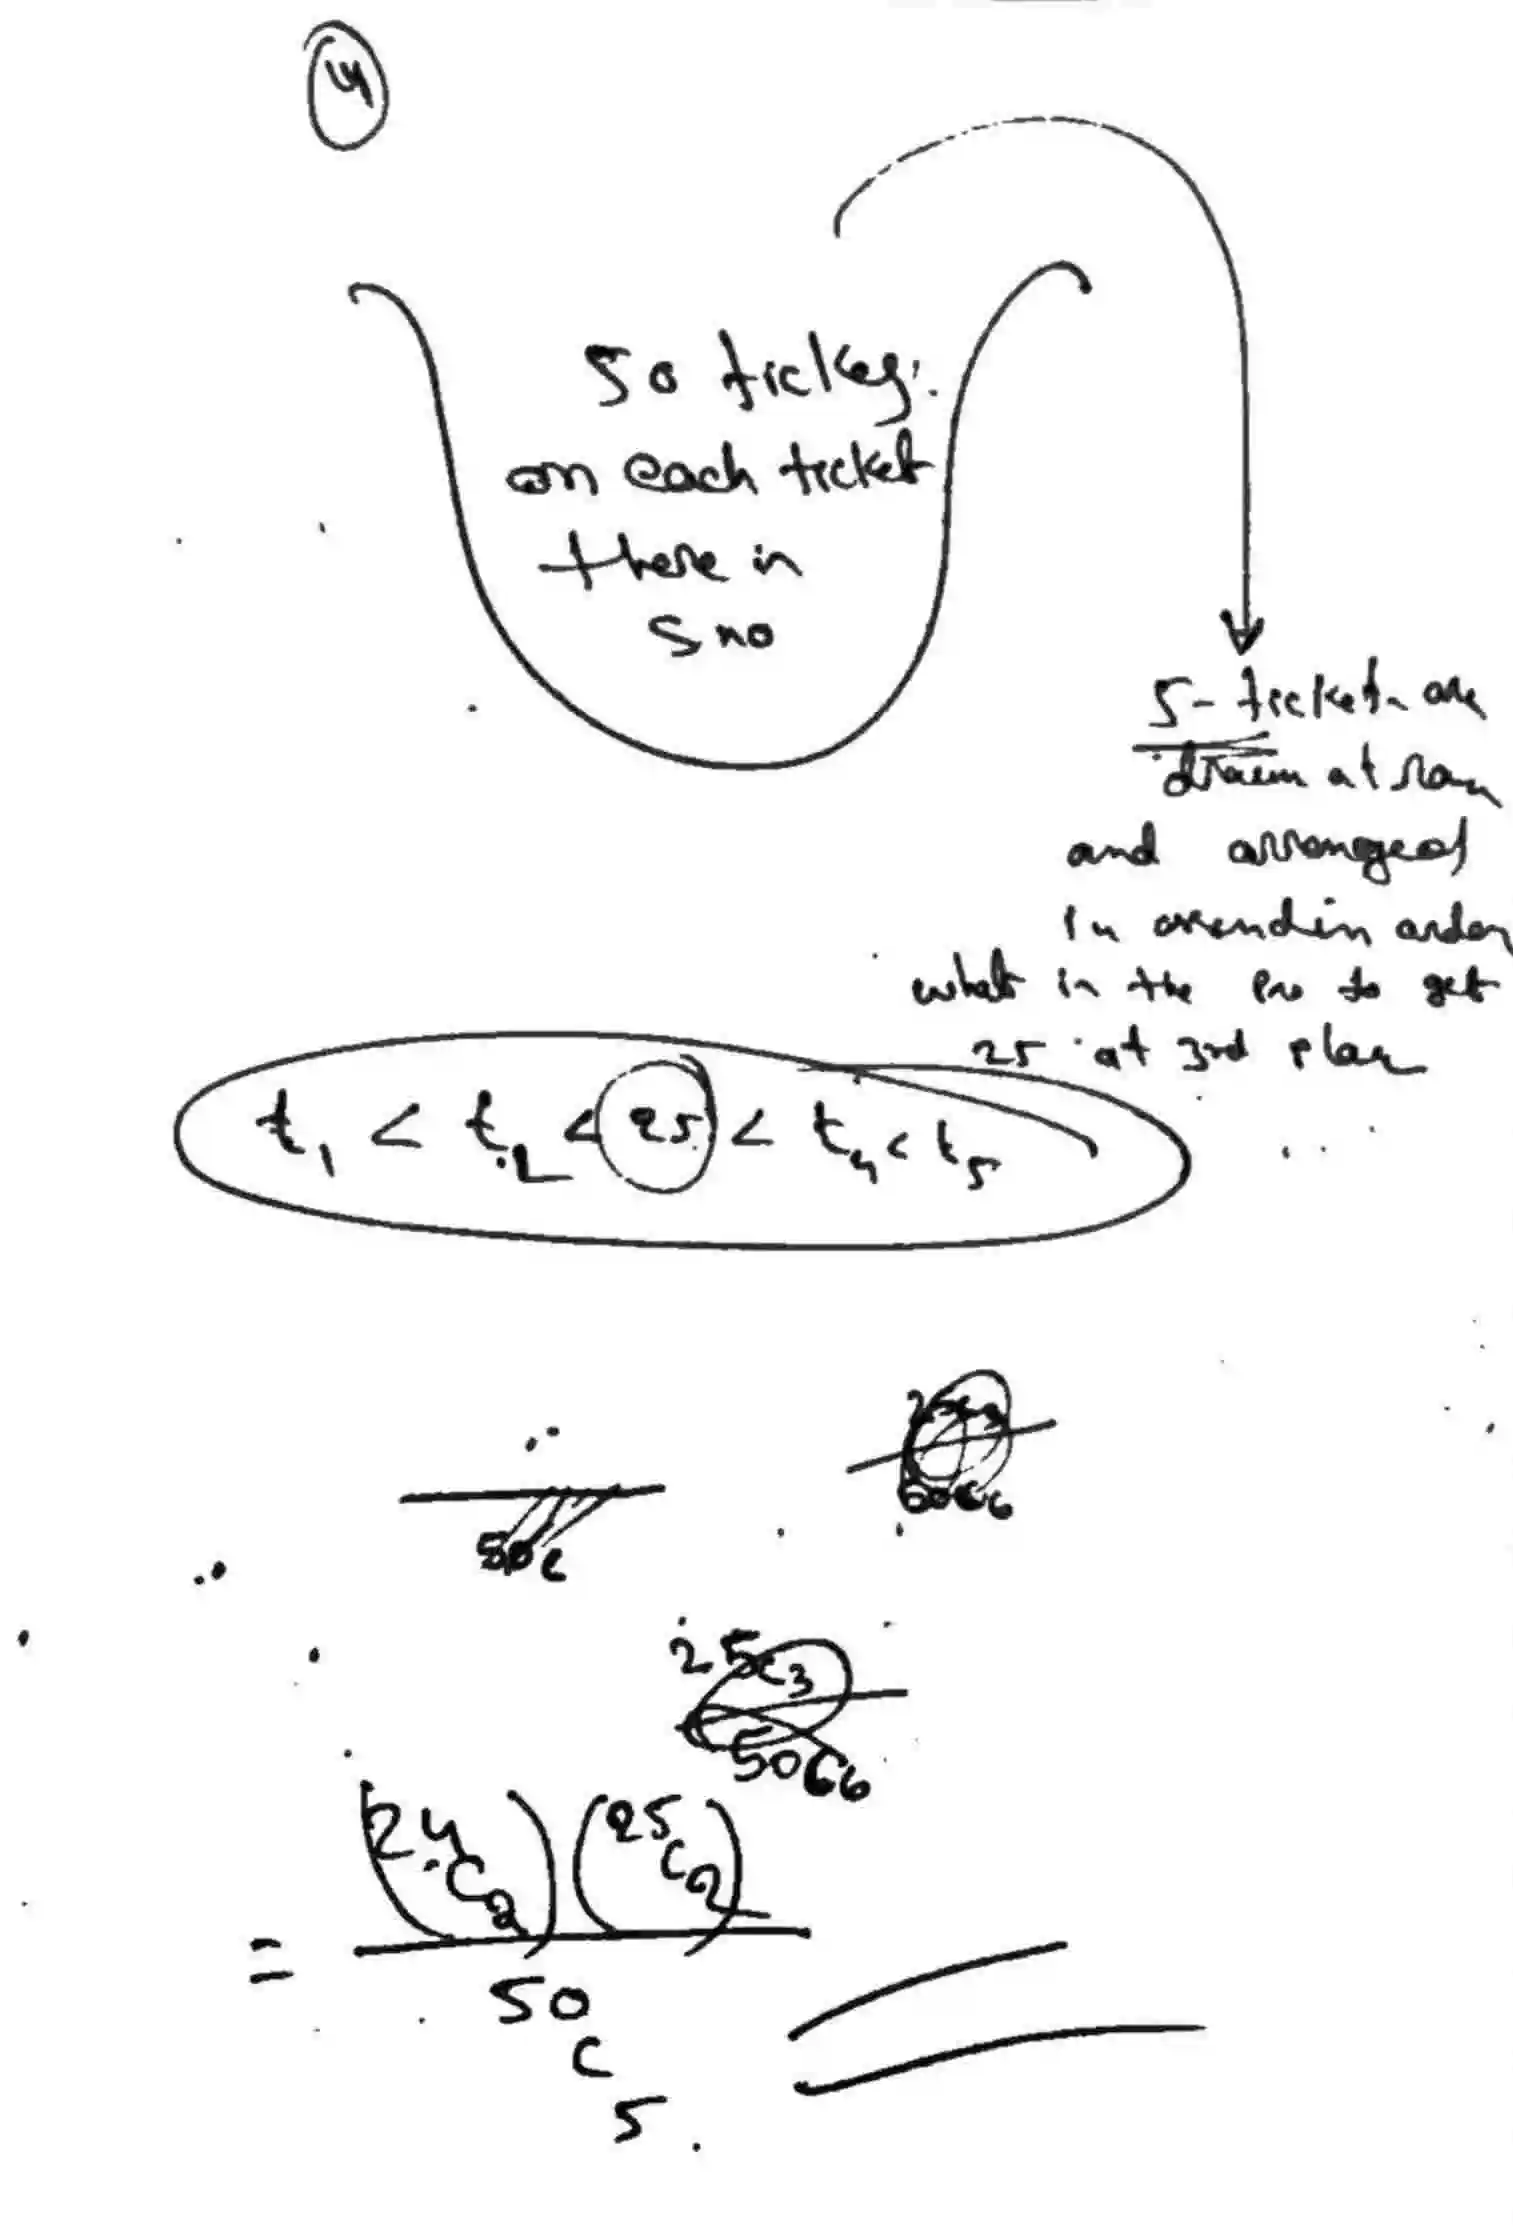 4
50 tickets
on each ticket
there is
S no
5- tickets are
drawn at ran
and arranged
in assendin order
what is the Pro to get
25 at 3rd place
t1 < t2 < 25 < t4 < t5
50C
25C3
50C6
= (24C2) (25C2)
50C5.